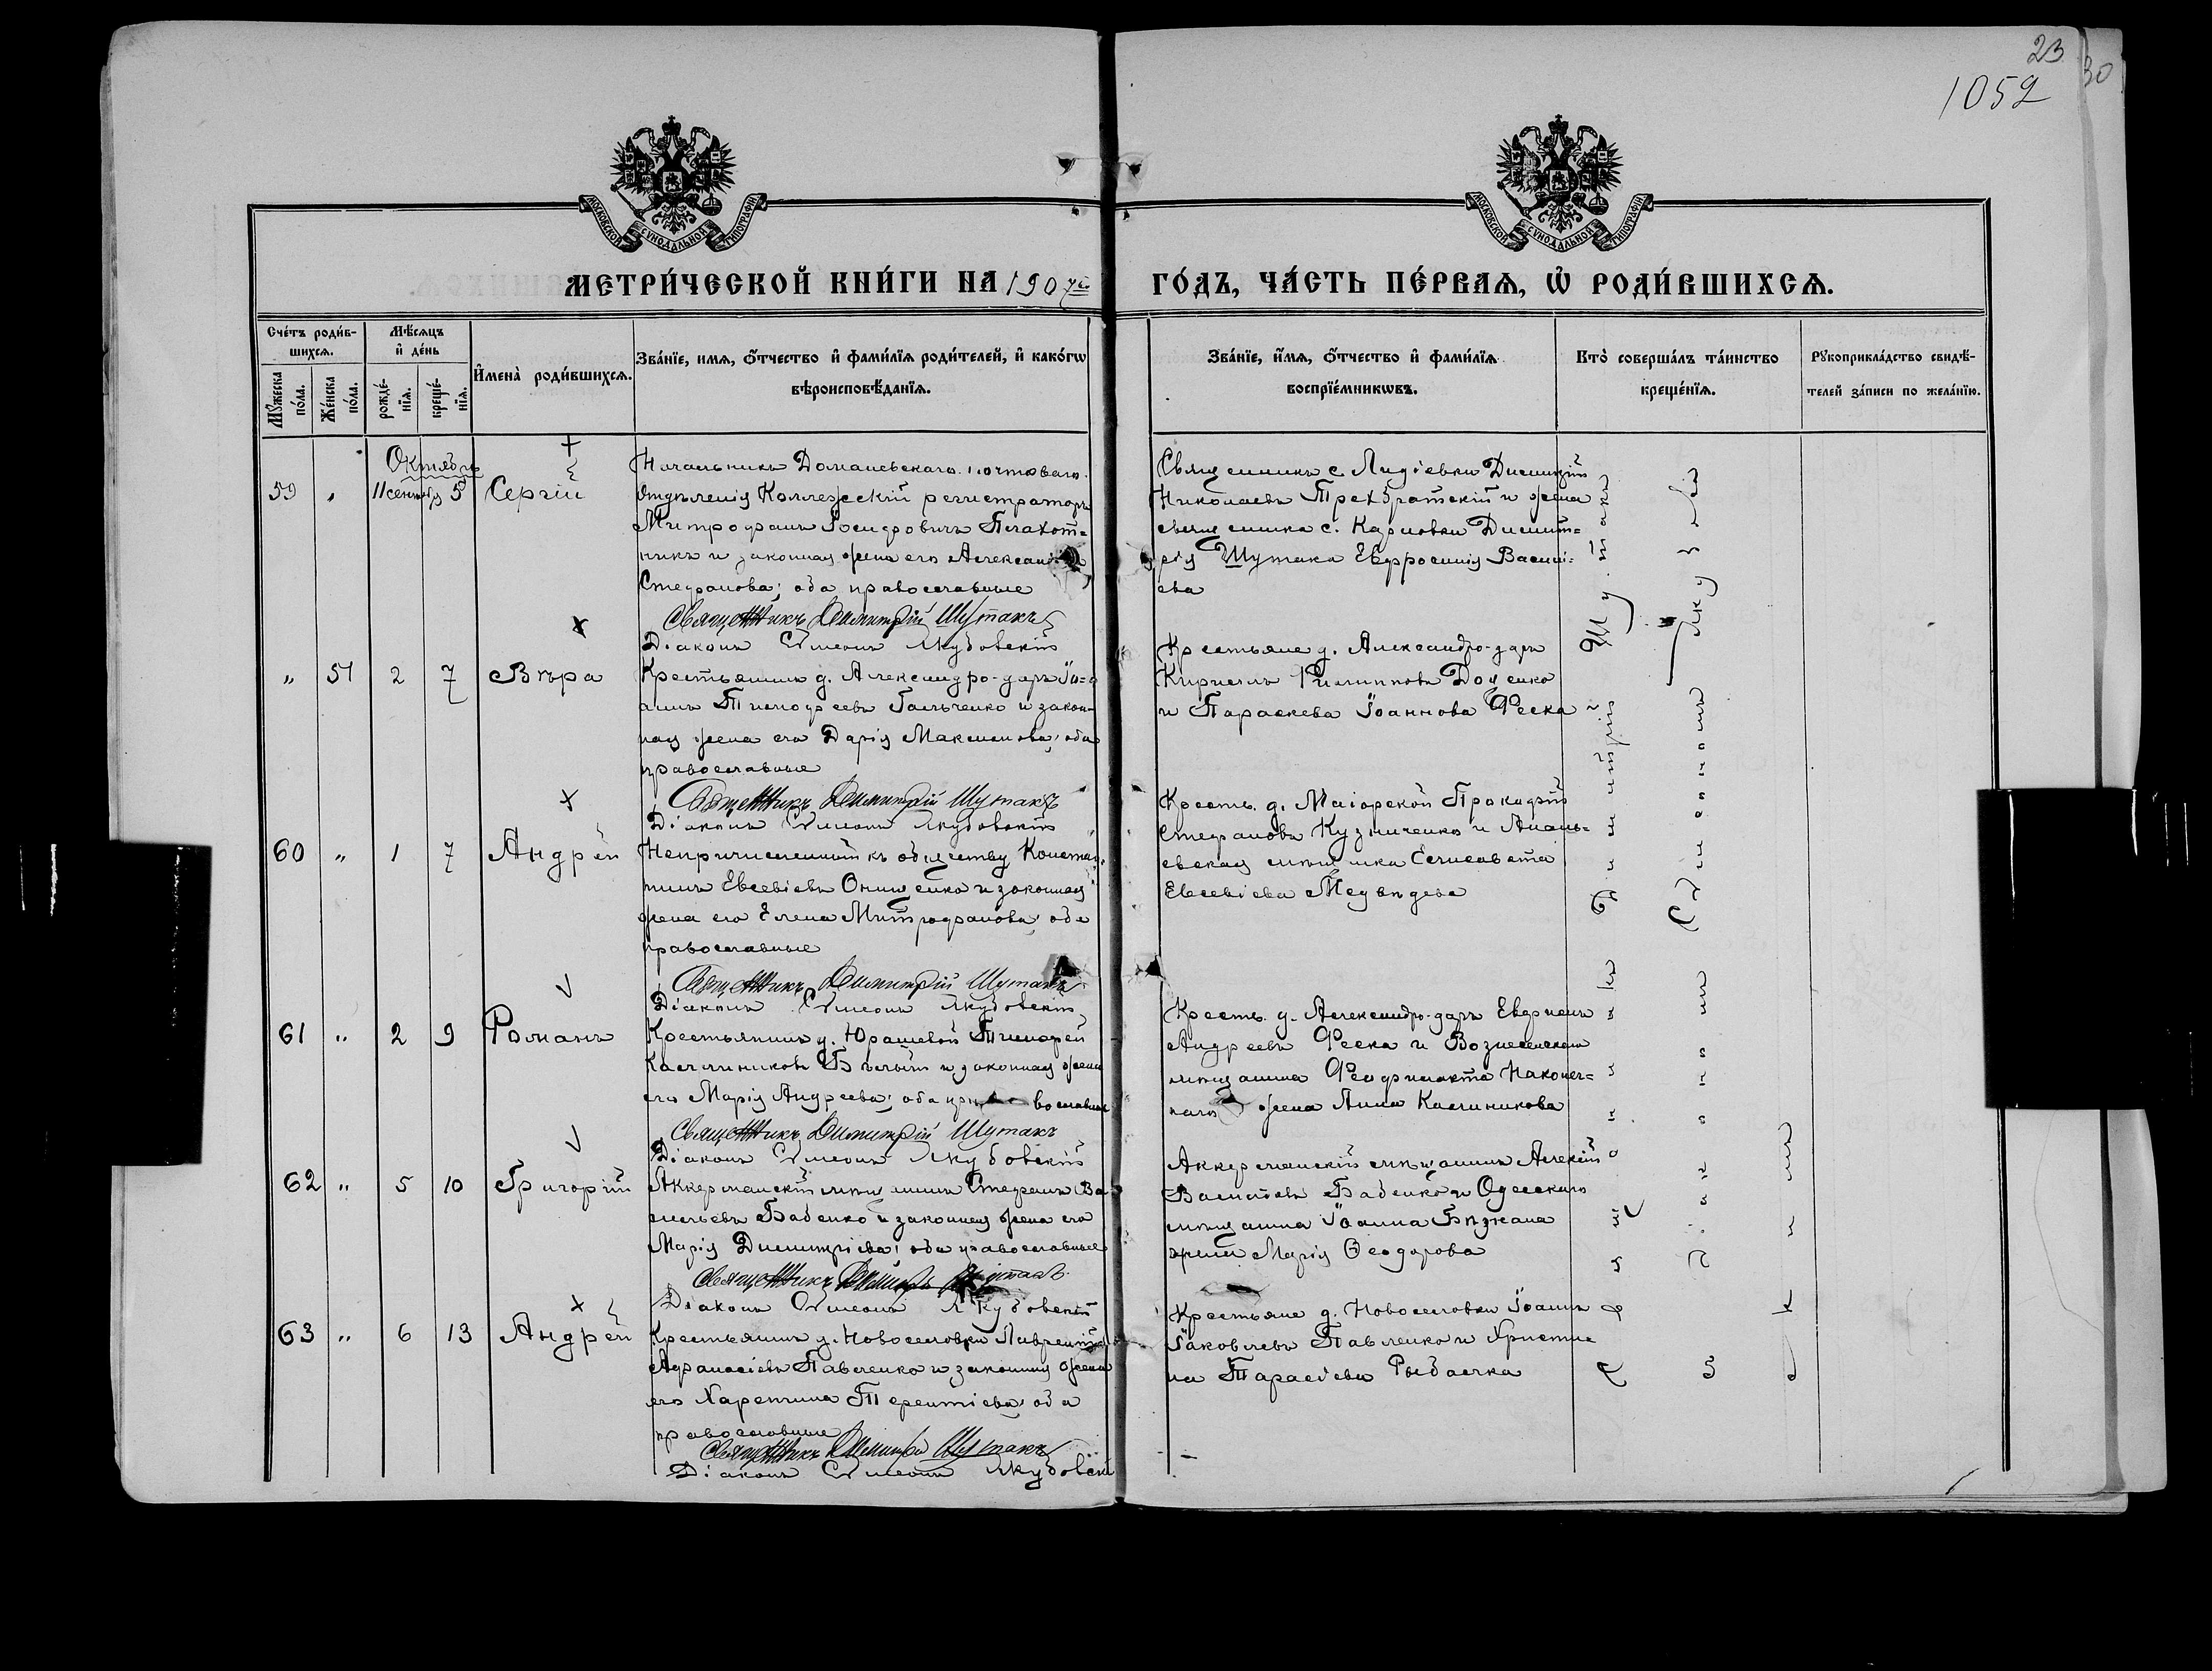 23
30
1052
МОСКОВСКОЙ СѴНОДАЛЬНОЙ ТИПОГРАФІИ
МОСКОВСКОЙ СѴНОДАЛЬНОЙ ТИПОГРАФІИ
МЕТРИ́ЧЕСКОЙ КНИ́ГИ НА 1907й
ГО́ДЪ, ЧА́СТЬ ПЕ́РВАѦ, Ѡ҆ РОДИ́ВШИХСѦ.
Сче́тъ роди́в-
шихсѧ.
Мѣ́сяцъ
и҆ де́нь
Мꙋ́жеска
по́ла.
Же́нска
по́ла.
рожде́-
нїѧ.
креще́-
нїѧ.
И҆мена̀ роди́вшихсѧ.
Зва́нїе, имѧ, ѻ҆́тчество и҆ фами́лїѧ роди́телей, и҆ како́гѡ
вѣроисповѣ́данїѧ.
Зва́нїе, и҆́мѧ, ѻ҆́тчество и҆ фами́лїѧ
воспрїе́мникѡвъ.
Кто̀ соверша́лъ та́инство
креще́нїѧ.
Рꙋкоприкла́дство свидѣ́-
телей за́писи по жела́нїю.
Октябрь
59 „ 11 сентября 5 Сергій
Начальникъ Доманевскаго почтоваго
Отдѣленія Коллежскій регистраторъ
Митрофанъ Плахот=
никъ и законная жена его Александра
Стефанова; оба православные
Священникъ Димитрій Шутакъ
Діаконъ Симеонъ Якубовскій
Священникъ с. Лидіевки Димитрій
Николаевъ Трехбратскій и жена
священника с. Карловки Димит=
рія Шутака Евфросинія Василі=
ева
„ 51 2 7 Вѣра
Крестьянинъ д. Александро-даръ Іо=
аннъ Тимофеевъ Гальченко и закон-
ная жена его Дарія Максимова; оба
православные
Священникъ Димитрій Шутакъ
Діаконъ Симеонъ Якубовскій
Крестьяне д. Александро-даръ
Кириллъ Филипповъ Доценко
и Параскева Іоаннова Феска
60 „ 1 7 Андрей
Непричисленный къ обществу Констан-
тинъ Евсевіевъ Онищенко и законная
жена его Елена Митрофанова; оба
православные
Священникъ Димитрій Шутакъ
Діаконъ Симеонъ Якубовскій
Кресть. д. Маіорской Прокофій
Стефановъ Кузниченко и Анань-
евская мѣщанка Елисавета
Евсевіева Медвѣдева
61 „ 2 9 Романъ
Крестьянинъ д. Юрашевой Тимофей
Каллиниковъ Бѣлый и законная жена
его Марія Андреева; оба православные
Священникъ Димитрій Шутакъ
Діаконъ Симеонъ Якубовскій
Кресть. д. Александро-даръ
Андреевъ Феска и Вознесенскаго
мѣщанина Феофилакта Наконеч=
наго жена Анна Каллиникова
62 „ 5 10 Григорій
Аккерманскій мѣщанинъ Стефанъ Ва
сильевъ Бабенко и законная жена его
Марія Димитріева; оба православные
Священникъ Димитрій Шутакъ
Діаконъ Симеонъ Якубовскій
Аккерманскій мѣщанинъ Алексій
Васильевъ Бабенко и Одесскаго
мѣщанина Іоанна Бѣжана
жена Марія Ѳеодорова
63 „ 6 13 Андрей
Крестьянинъ д. Новоселовки Лаврентій
Афанасіевъ Павленко и законная жена
его Харитина Терентіева; оба
православные
Священникъ Димитрій Шутакъ
Діаконъ Симеонъ Якубовскій
Крестьяне д. Новоселовки Іоаннъ
Іаковлевъ Павленко и Христи-
на Тарасіева Рыбалка
Священникъ Димитрій Шутакъ